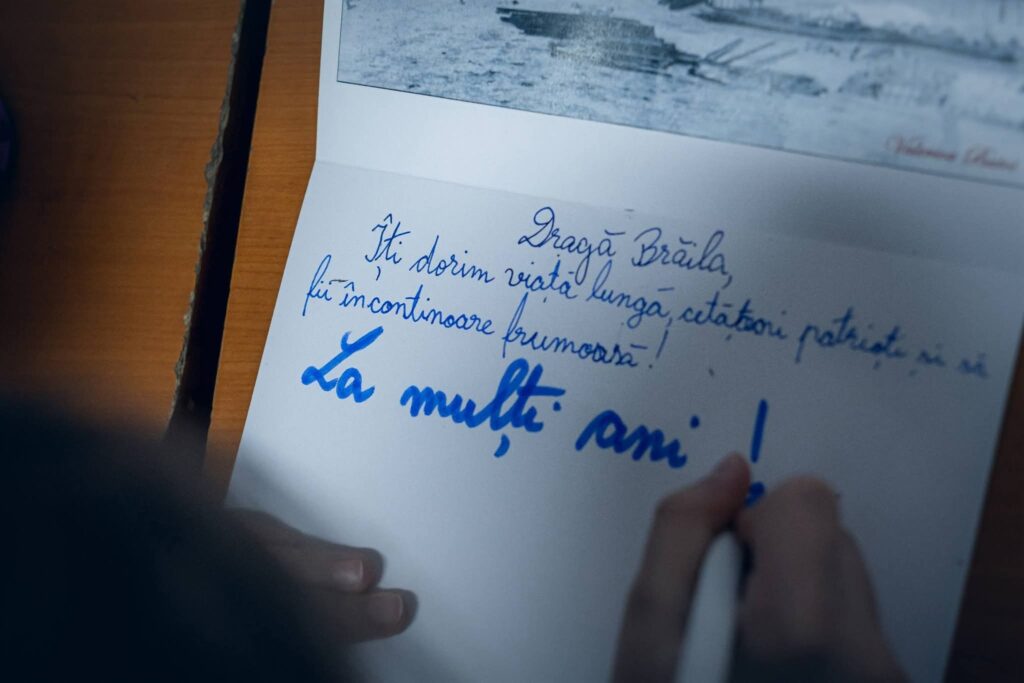 Dragă Brăila,
Îți dorim viață lungă, cetățeni patrioți și să
fii încontinoare frumoasă!
La mulți ani!